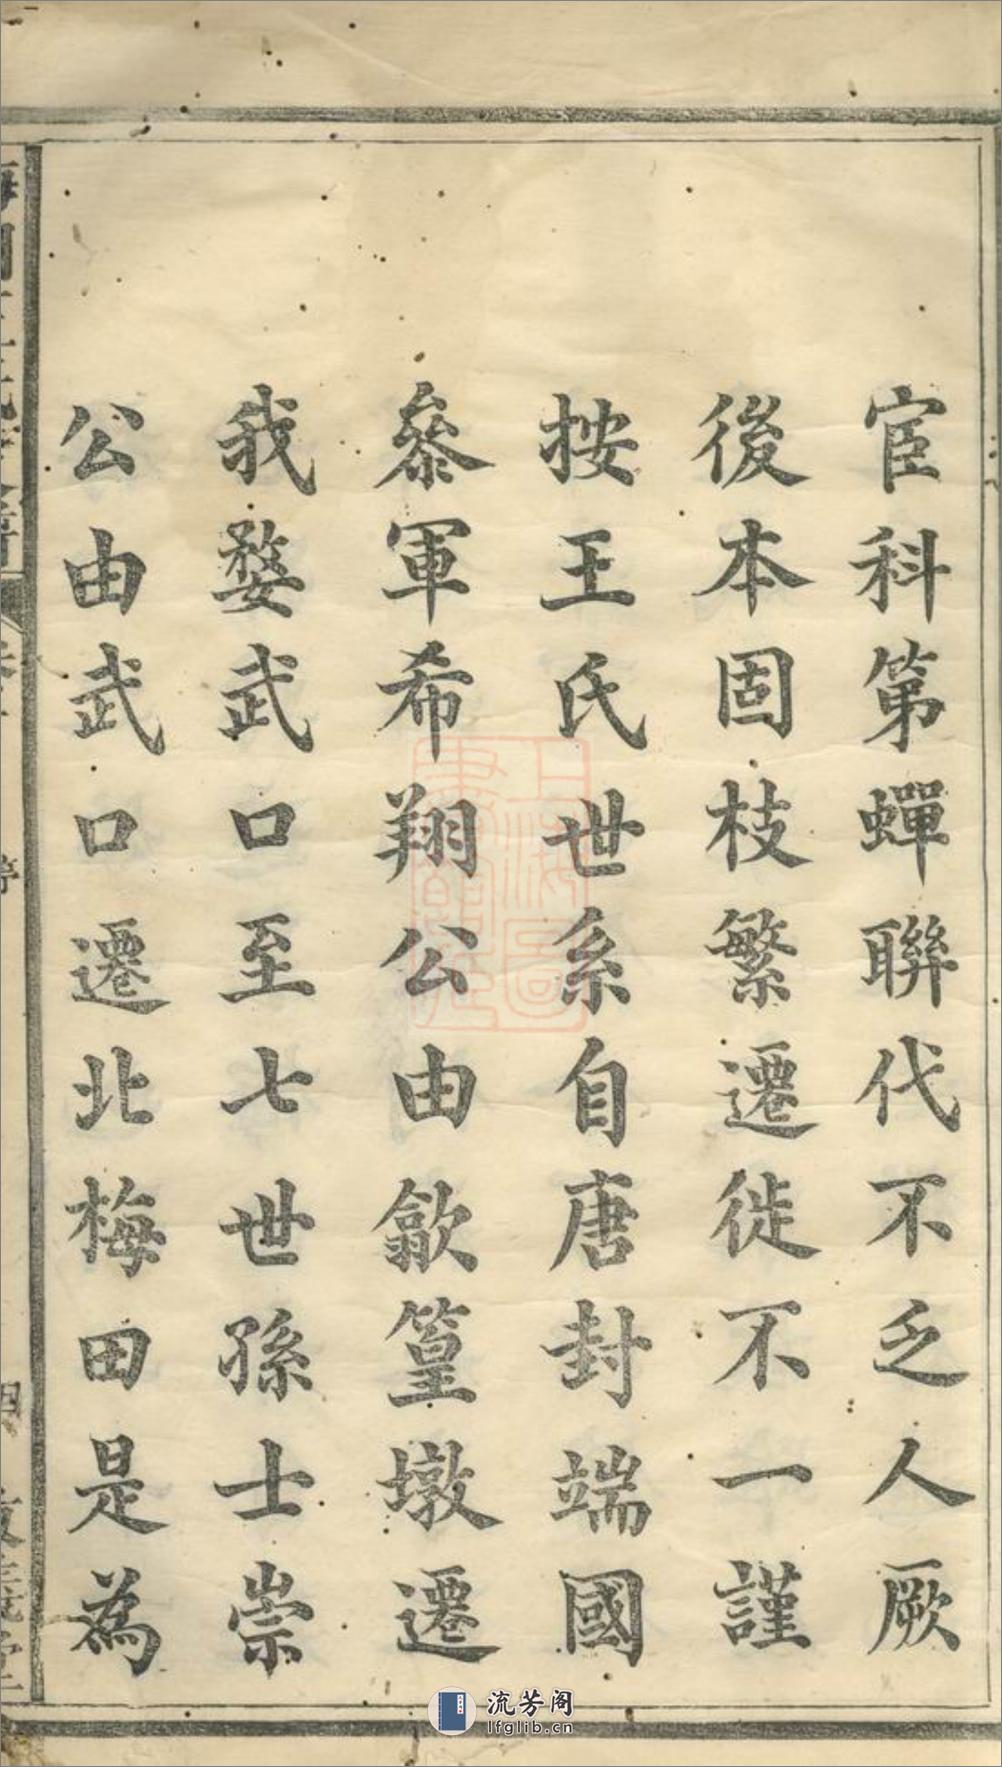 宦科第蟬聯代不乏人厥
後本固枝繁遷徙不一謹
按王氏世系自唐封端國
叅軍希翔公由歙篁墩遷
我婺武口至七世孫士崇
公由武口遷北梅田是為
流芳阁
lfglib.cn